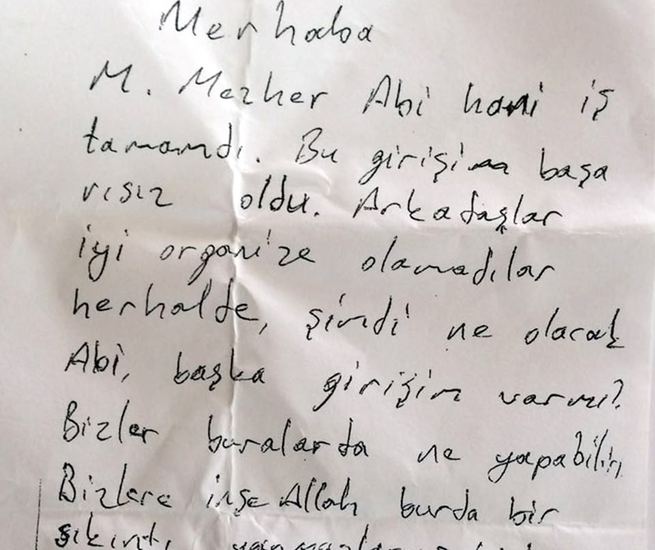 Merhaba
M. Mezher Abi hani iş
tamamdı. Bu girişim başa
rısız oldu. Arkadaşlar
iyi organize olamadılar
herhalde, şimdi ne olacak
Abi, başka girişim varmı?
Bizler buralarda ne yapabilir,
Bizlere inşe Allah burda bir
sıkıntı